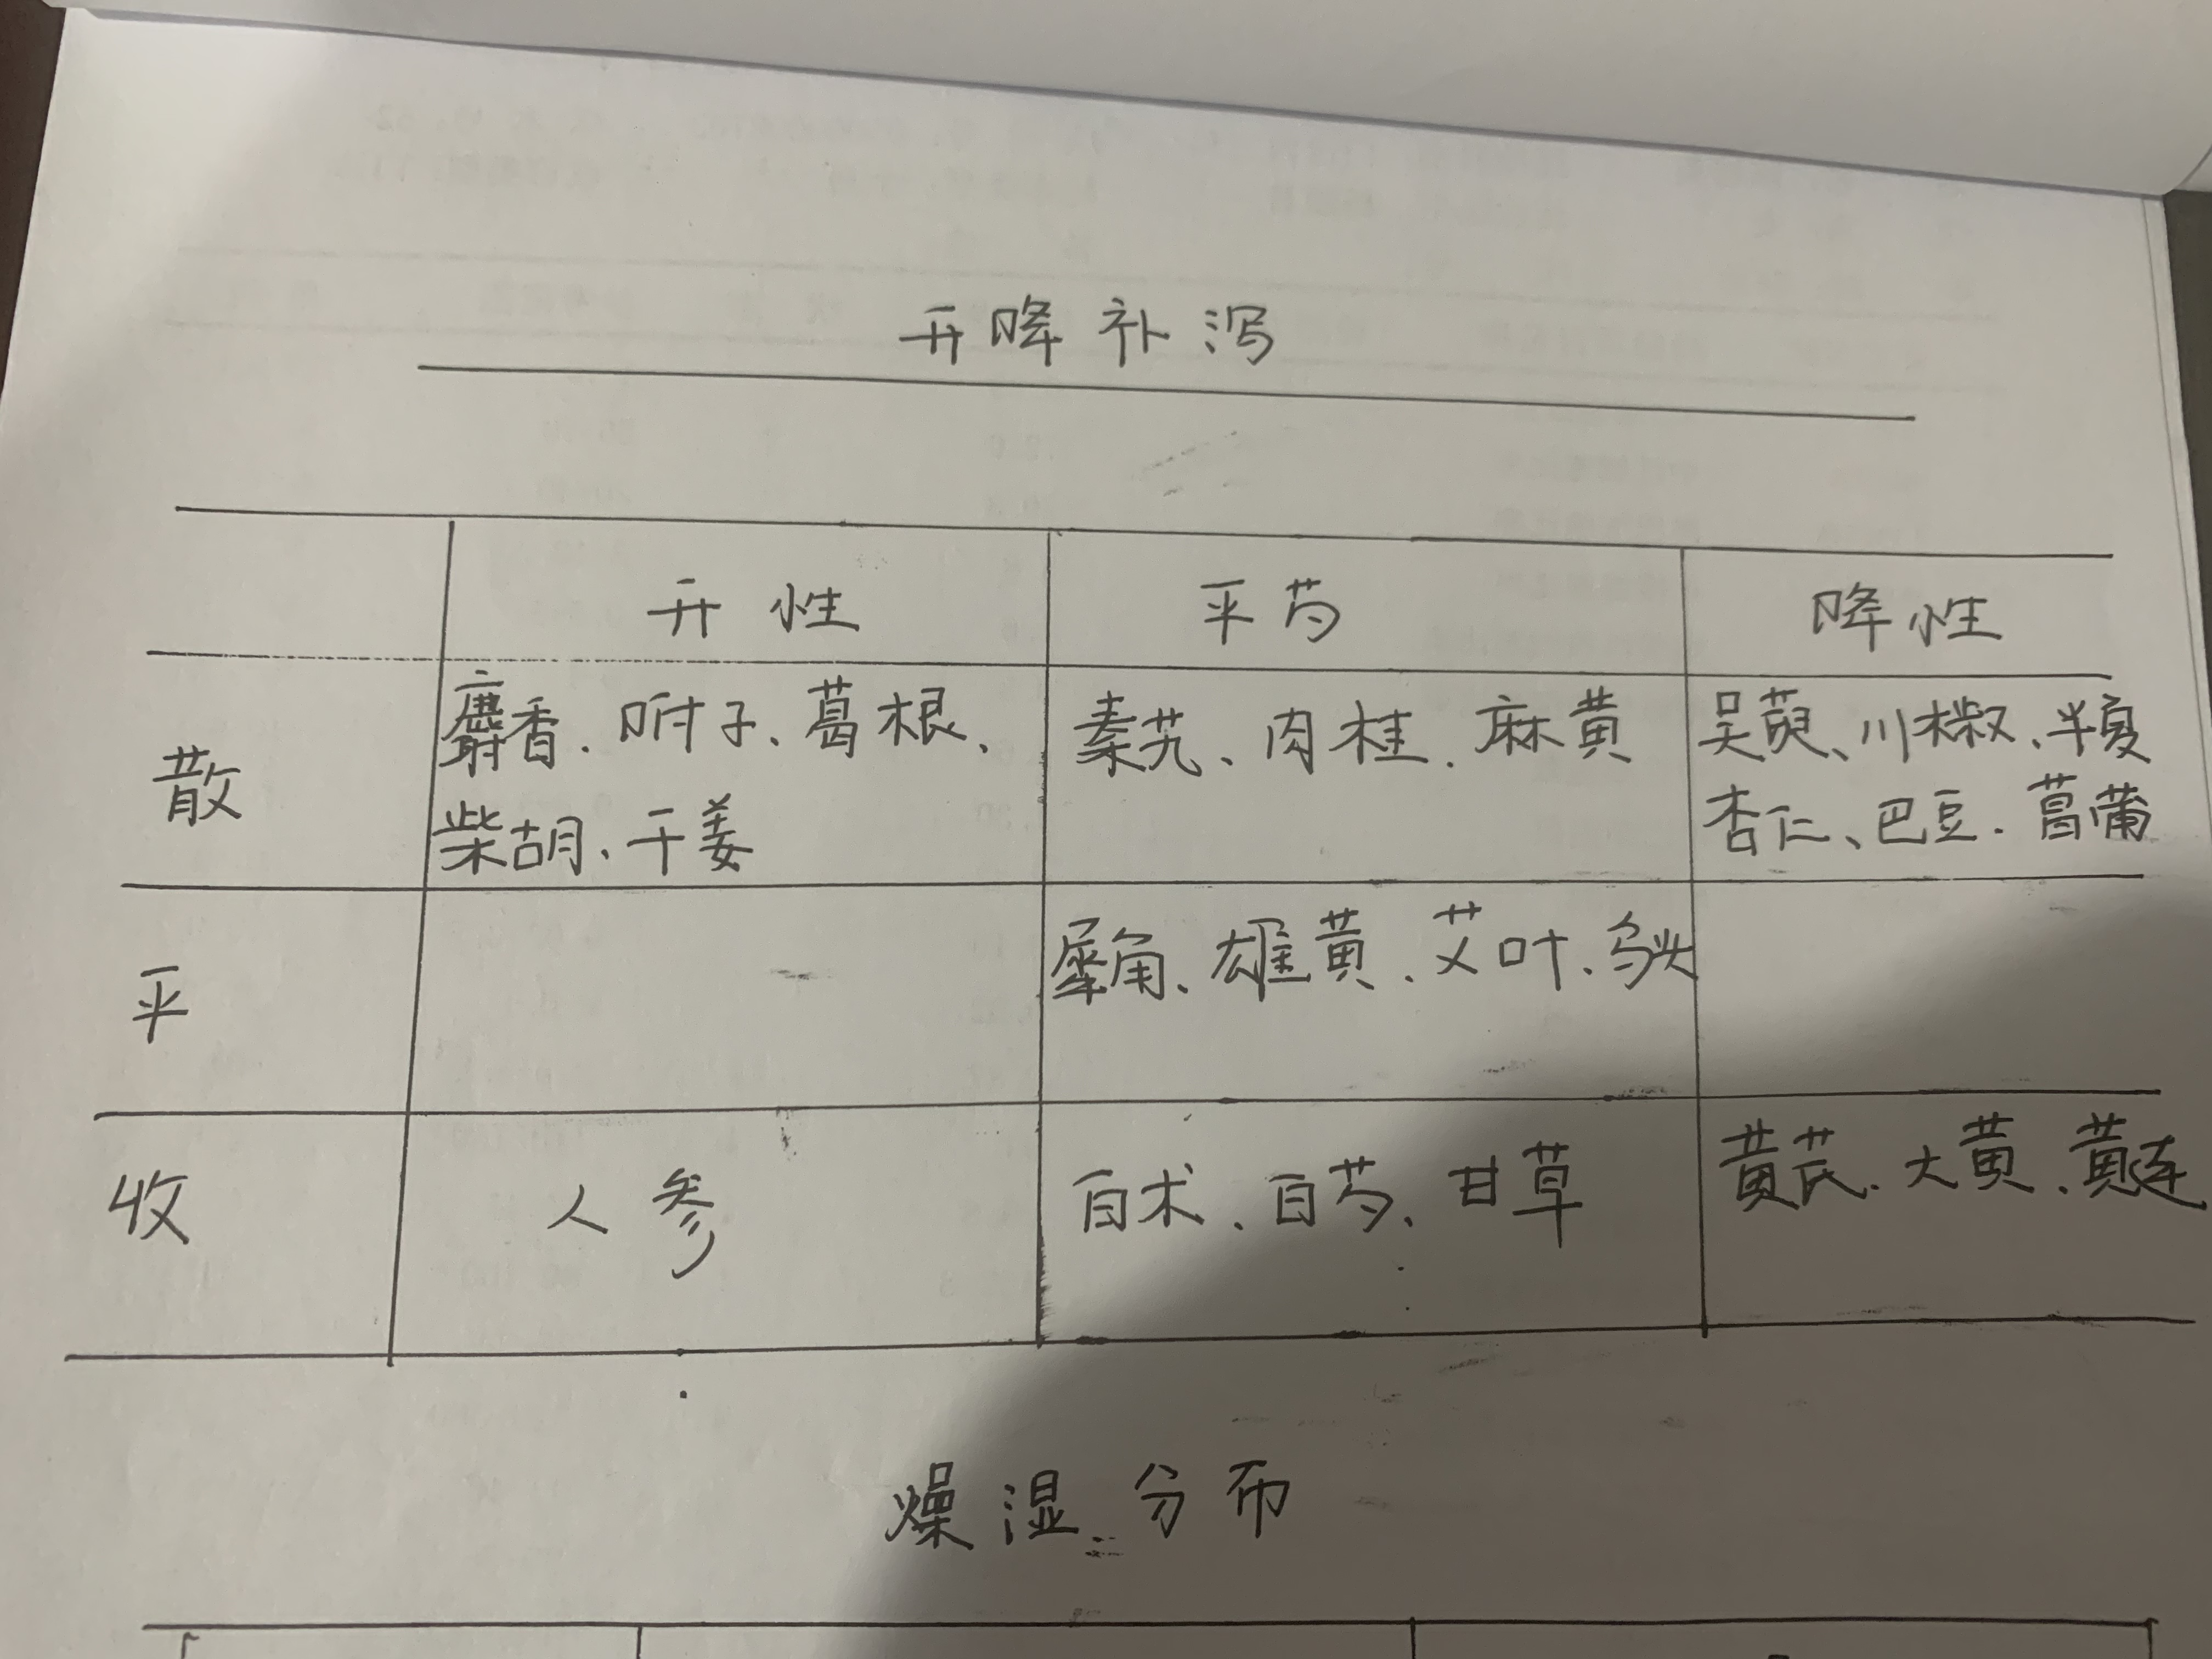 升降补泻
升性 平芍 降性
散 麝香、附子、葛根、 秦艽、肉桂、麻黄 吴萸、川椒、半夏
柴胡、干姜 杏仁、巴豆、菖蒲
平 犀角、雄黄、艾叶、乌头
收 人参 白术、白芍、甘草 黄芪、大黄、黄连
燥湿分布